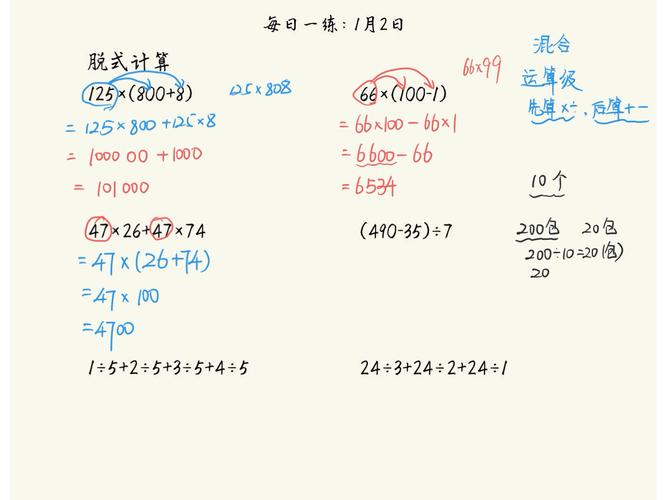 每日一练：1月2日
脱式计算
125×(800+8) 125×808
= 125×800+125×8
= 100000+1000
= 101000
66×(100-1) 66×99
= 66×100-66×1
= 6600-66
= 6534
混合
运算级
先算×÷，后算+-
10个
47×26+47×74
= 47×(26+74)
= 47×100
= 4700
(490-35)÷7
200包 20包
200÷10=20(包)
20
1÷5+2÷5+3÷5+4÷5
24÷3+24÷2+24÷1